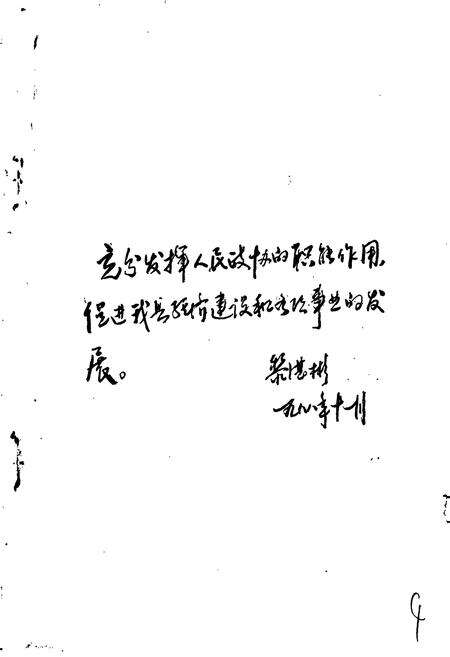 充分发挥人民政协的职能作用,
促进我县经济建设和各项事业的发
展。
黎湛彬
一九八八年十一月
4